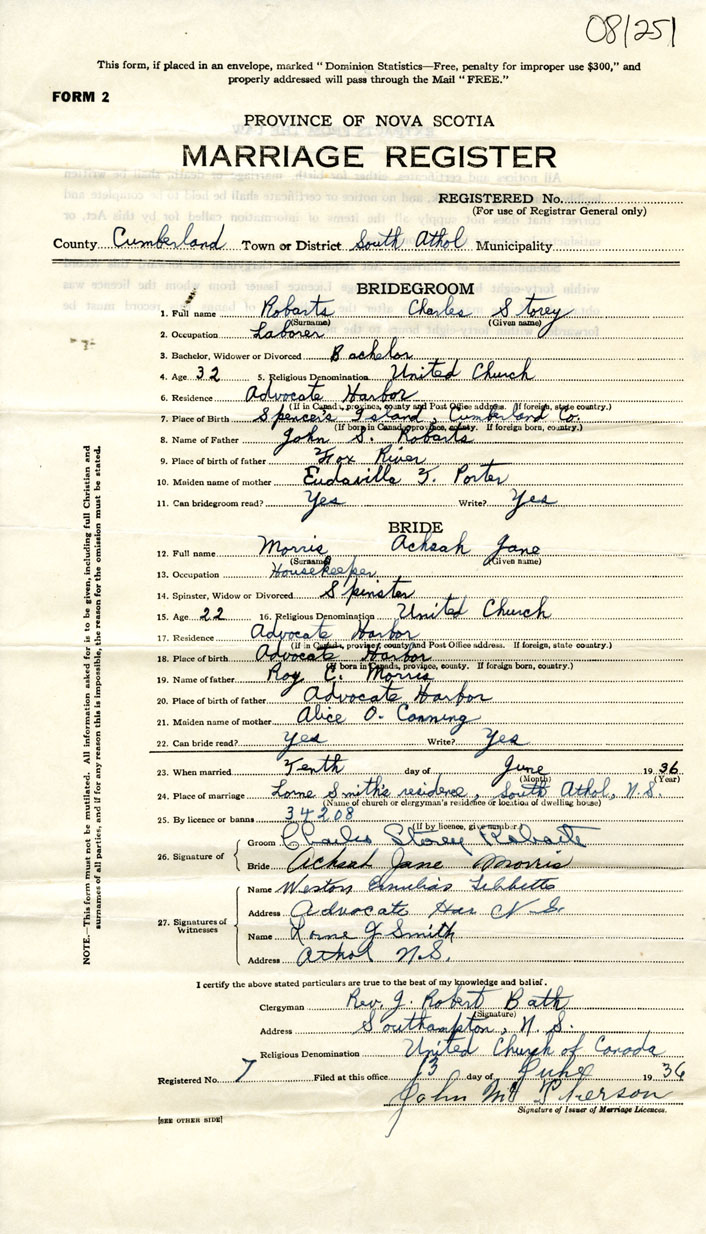 08/251
This form, if placed in an envelope, marked "Dominion Statistics—Free, penalty for improper use $300," and
properly addressed will pass through the Mail "FREE."
FORM 2
PROVINCE OF NOVA SCOTIA
MARRIAGE REGISTER
REGISTERED No.
(For use of Registrar General only)
County Cumberland Town or District South Athol Municipality
BRIDEGROOM
1. Full name Robarts Charles Storey
(Surname) (Given name)
2. Occupation Laborer
3. Bachelor, Widower or Divorced Bachelor
4. Age 32 5. Religious Denomination United Church
6. Residence Advocate Harbor
(If in Canada, province, county and Post Office address. If foreign, state country.)
7. Place of Birth Spencer's Island, Cumberland Co.
(If born in Canada, province, county. If foreign born, country.)
8. Name of Father John S. Robarts
9. Place of birth of father Fox River
10. Maiden name of mother Eudavilla F. Porter
11. Can bridegroom read? Yes Write? Yes
BRIDE
12. Full name Morris Achsah Jane
(Surname) (Given name)
13. Occupation Housekeeper
14. Spinster, Widow or Divorced Spinster
15. Age 22 16. Religious Denomination United Church
17. Residence Advocate Harbor
(If in Canada, province, county and Post Office address. If foreign, state country.)
18. Place of birth Advocate Harbor
(If born in Canada, province, county. If foreign born, country.)
19. Name of father Roy C. Morris
20. Place of birth of father Advocate Harbor
21. Maiden name of mother Alice O. Canning
22. Can bride read? Yes Write? Yes
23. When married Tenth day of June 19 36
(Month) (Year)
24. Place of marriage Lorne Smith's residence, South Athol, N.S.
(Name of church or clergyman's residence or location of dwelling house)
25. By licence or banns 34208
(If by licence, give number)
26. Signature of
Groom Charles Storey Robarts
Bride Achsah Jane Morris
27. Signatures of Witnesses
Name Weston Tibbetts
Address Advocate Har N S
Name Lorne J Smith
Address Athol N.S.
I certify the above stated particulars are true to the best of my knowledge and belief.
Clergyman Rev. J. Robert Bath
(Signature)
Address Southampton, N.S.
Religious Denomination United Church of Canada
Registered No. 7 Filed at this office 13 day of June 19 36
John
Signature of Issuer of Marriage Licences.
[SEE OTHER SIDE]
NOTE.—This form must not be mutilated. All information asked for is to be given, including full Christian and
surnames of all parties, and if for any reason this is impossible, the reason for the omission must be stated.